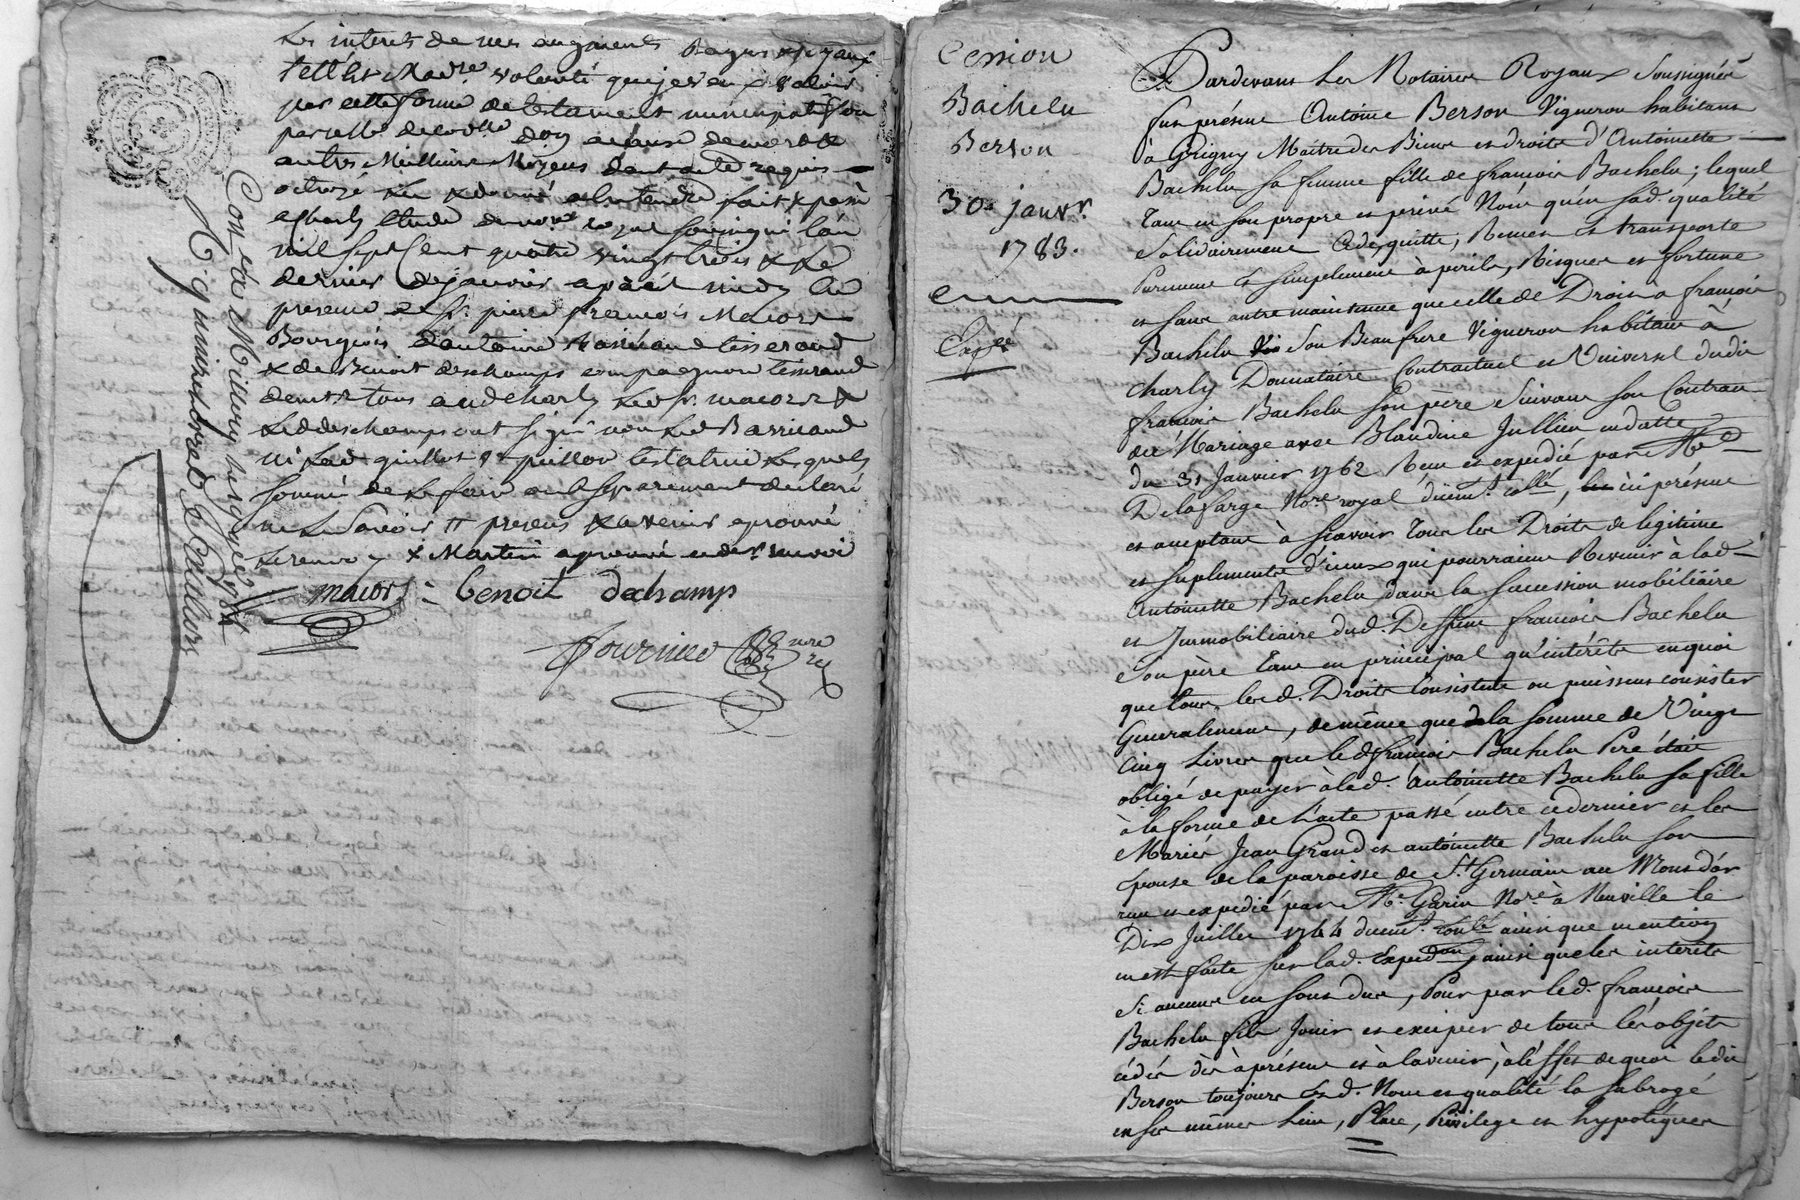 Les interets de mes augments
telle est Madre volonté que je veux valoir
par cette forme de testament nuncupatif ou
par celle de codicille don a cause de mort &
autres Meilleurs Moyens dont acte requis
octroyé fait & passé
a Charly Etude du nore royal soussigné l'an
mil sept Cent quatre vingt trois & Le
dernier de janvier apres midy En
presence de Sr. pierre francois Macors
Bourgeois d'antoine Barricand tisserand
& de Benoit deschamps compagnon tisserand
demt. tous aud charly led sr. macors &
Led deschamps ont signé non Led Barricand
ni Lad testatrice Lesquels
sommé de Le faire ont separement declaré
ne Le Savoir presens & avenir aprouvé
Le renvoy
macors : benoit dechamp
Fournier nore
ry
Con
Cession
Bachelu
Berson
30. janvr.
1783.
Expéé
Pardevant Les Notaires Royaux Soussignés
fut présent Antoine Berson Vigneron habitant
à Grigny Maitre des Biens et droits d'Antoinette
Bachelu sa femme fille de francois Bachelu ; lequel
tant en son propre et privé Nom qu'en sad. qualité
Solidairement Cede, quitte, Remet et transporte
Purement et simplement à perils, Risques et fortune
et sans autre maintenue que celle de Droit à francois
Bachelu Son Beaufrere Vigneron habitant à
Charly Donnataire Contractuel et Universel dudit
francois Bachelu son pere Suivant son Contrat
de Mariage avec Blandine Jullien en datte
du 31 Janvier 1762 Reçu et expedié par Me
Delafarge Nore. royal düemt. collé, ici présent
et aceptant à scavoir tous les Droits de legitime
et suplements d'iceux qui pourraient Revenir à lad
Antoinette Bachelu dans la succession mobiliaire
et Jmmobiliaire dud. Deffunt francois Bachelu
Son père tant en principal qu'intérêts en quoi
que tous lesd. Droits Consistent ou puissent consister
Généralement, de même que la somme de Vingt
Cinq Livres que led francois Bachelu Pere était
obligé de payer à lad. antoinette Bachelu sa fille
à la forme de L'acte passé entre ce dernier et les
Mariés Jean Grand et antoinette Bachelu son
épouse de la paroisse de St. Germain au Mont d'or
reçu et expedié par Me. Garin Nore. à Neuville le
Dix Juillet 1764 duemt. collé ainsi que mention
en est faite sur lad. Expedon, ainsi que les intérêts
Si aucuns en sont dus, Pour par led. francois
Bachelu fils Jouir et exciper de tous les objets
cédés dès àprésent et à lavenir, à l'effet de quoi ledit
Berson toujours esd. Noms et qualité la subrogé
en ses mêmes Lieu, Place, Privilege et hypotéques